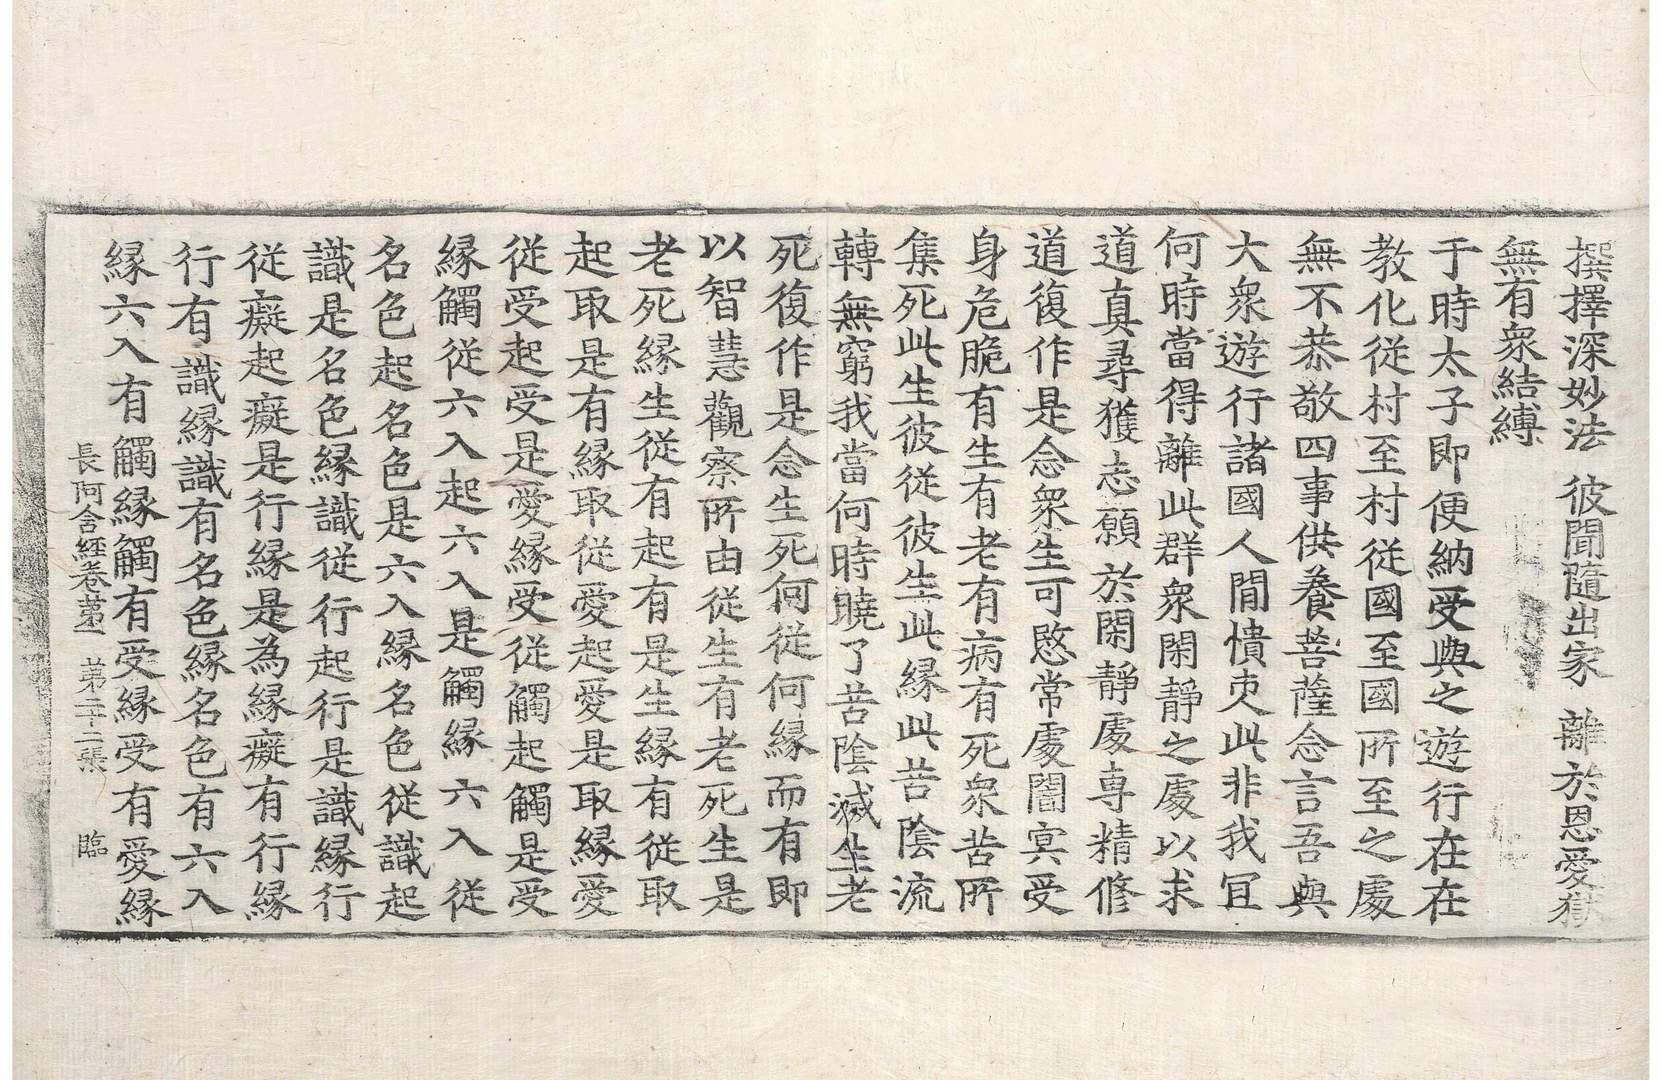 撰擇深妙法 彼聞隨出家 離於恩愛獄
無有衆結縛
于時太子即便納受與之遊行在在
教化從村至村從國至國所至之處
無不恭敬四事供養菩薩念言吾與
大衆遊行諸國人間憒丙此非我冝
何時當得離此群衆閑靜之處以求
道真尋獲志願於閑靜處専精修
道復作是念衆生可愍常處闇㝠受
身危脆有生有老有病有死衆苦所
集死此生彼從彼生此緣此苦陰流
轉無窮我當何時曉了苦陰滅生老
死復作是念生死何從何緣而有即
以智慧觀察所由從生有老死生是
老死緣生從有起有是生緣有從取
起取是有緣取從愛起愛是取緣愛
從受起受是愛緣受從觸起觸是受
緣觸從六入起六入是觸緣六入從
名色起名色是六入緣名色從識起
識是名色緣識從行起行是識緣行
從癡起癡是行緣是為緣癡有行緣
行有識緣識有名色緣名色有六入
緣六入有觸緣觸有受緣受有愛緣
長阿含經卷苐一 第二十二張 臨